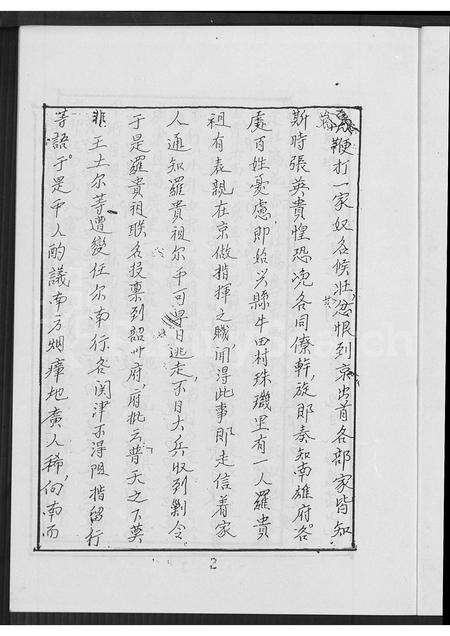 鞭打一家奴名候壯忿恨到京出首各部家皆知
斯時張英貴惶恐凂各同僚幹旋即奏知南雄府各
處百姓憂慮即始兴縣牛田村珠璣里有一人羅貴
祖有表親在京做揩揮之職聞得此事即走信着家
人通知羅貴祖尔千可早日逃走不日大兵收到剿令
于是羅貴祖联名投禀到韶州府府批云普天之下莫
非王土尔等遭變任尔南行各関津不得阻揩留行
等語于是千人酌議南方烟瘴地廣人稀向南而
2